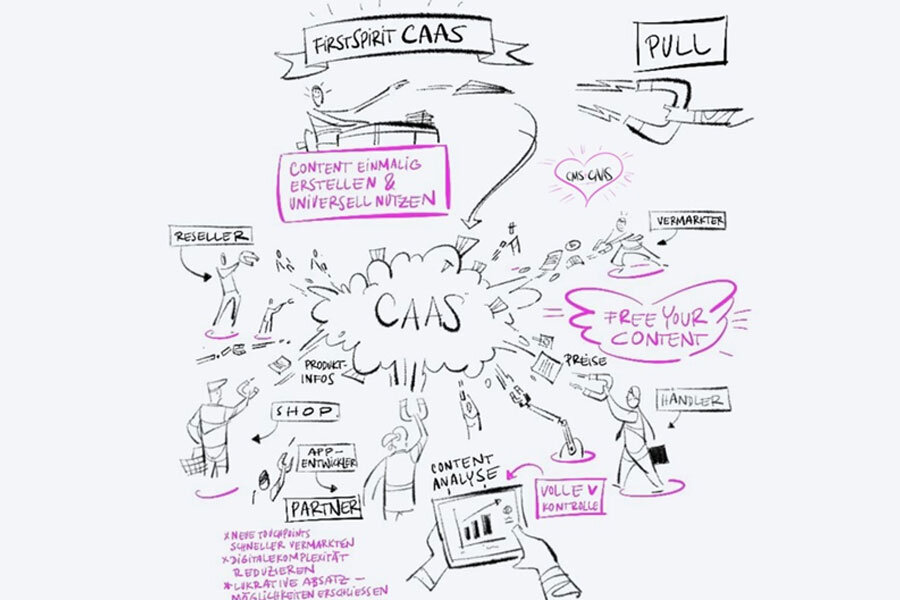 FIRSTSPIRIT CAAS
PULL
CONTENT EINMALIG
ERSTELLEN &
UNIVERSELL NUTZEN
CMS·CAAS
RESELLER
VERMARKTER
CAAS
FREE YOUR
CONTENT
PRODUKT-
INFOS
PREISE
SHOP
HÄNDLER
APP-
ENTWICKLER
PARTNER
CONTENT
ANALYSE
VOLLE
KONTROLLE
x NEUE TOUCHPOINTS
SCHNELLER VERMARKTEN
x DIGITALE KOMPLEXITÄT
REDUZIEREN
x LUKRATIVE ABSATZ-
MÖGLICHKEITEN ERSCHLIESSEN